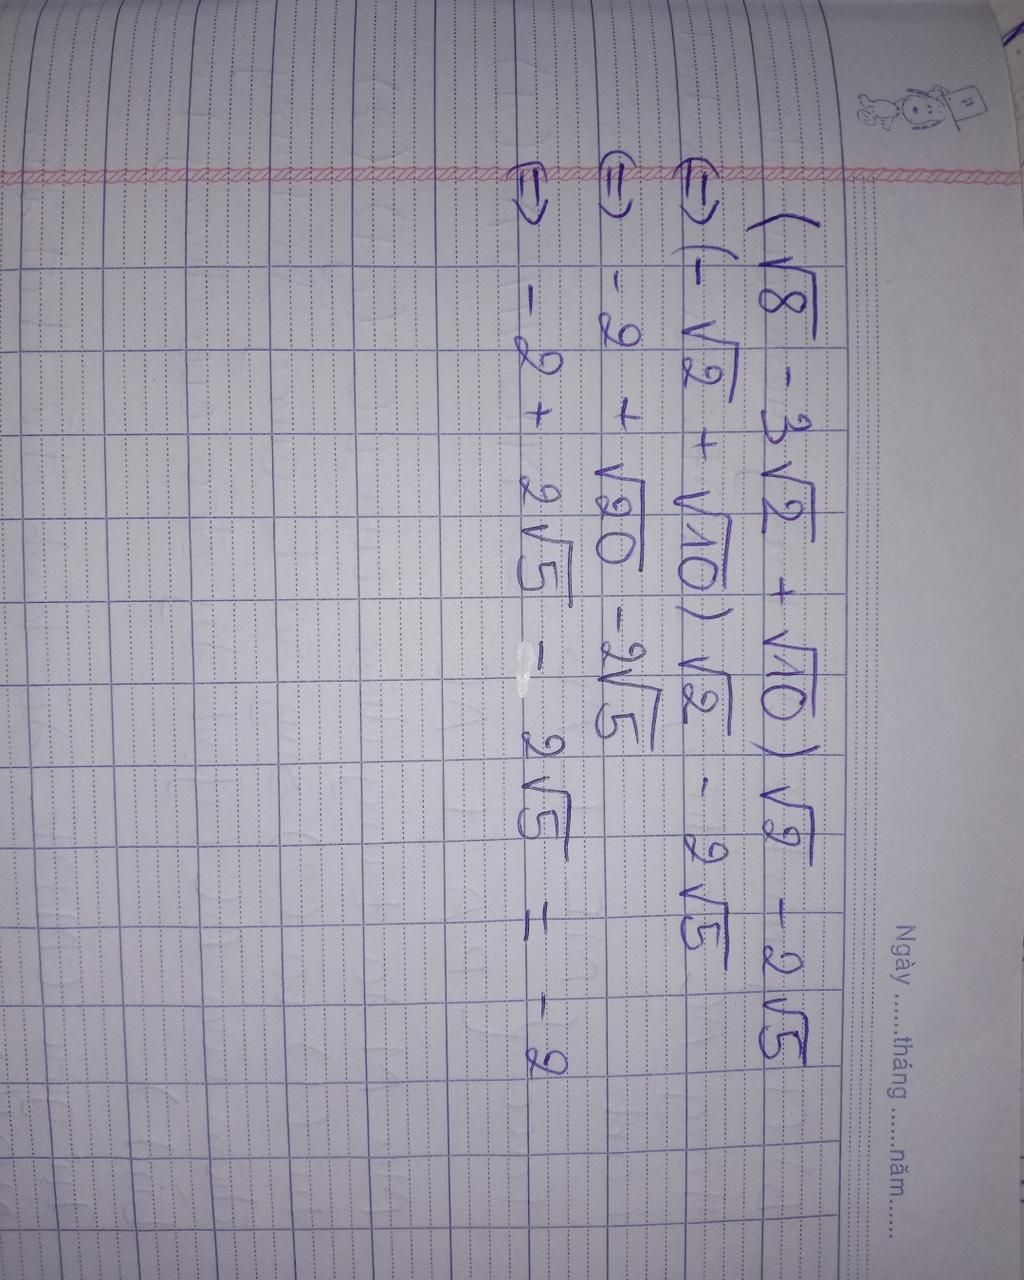 Ngày ......tháng ......năm......
(√8 - 3√2 + √10) √2 - 2√5
⇔ (- √2 + √10) √2 - 2√5
⇔ -2 + √20 - 2√5
⇔ -2 + 2√5 - 2√5 = -2